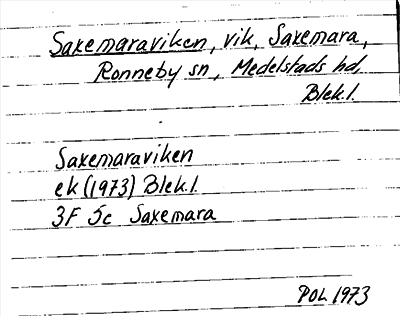 Saxemaraviken, vik, Saxemara,
Ronneby sn, Medelstads hd,
Blek.l.
Saxemaraviken
ek (1973) Blek.l.
3F 5c Saxemara
POL 1973